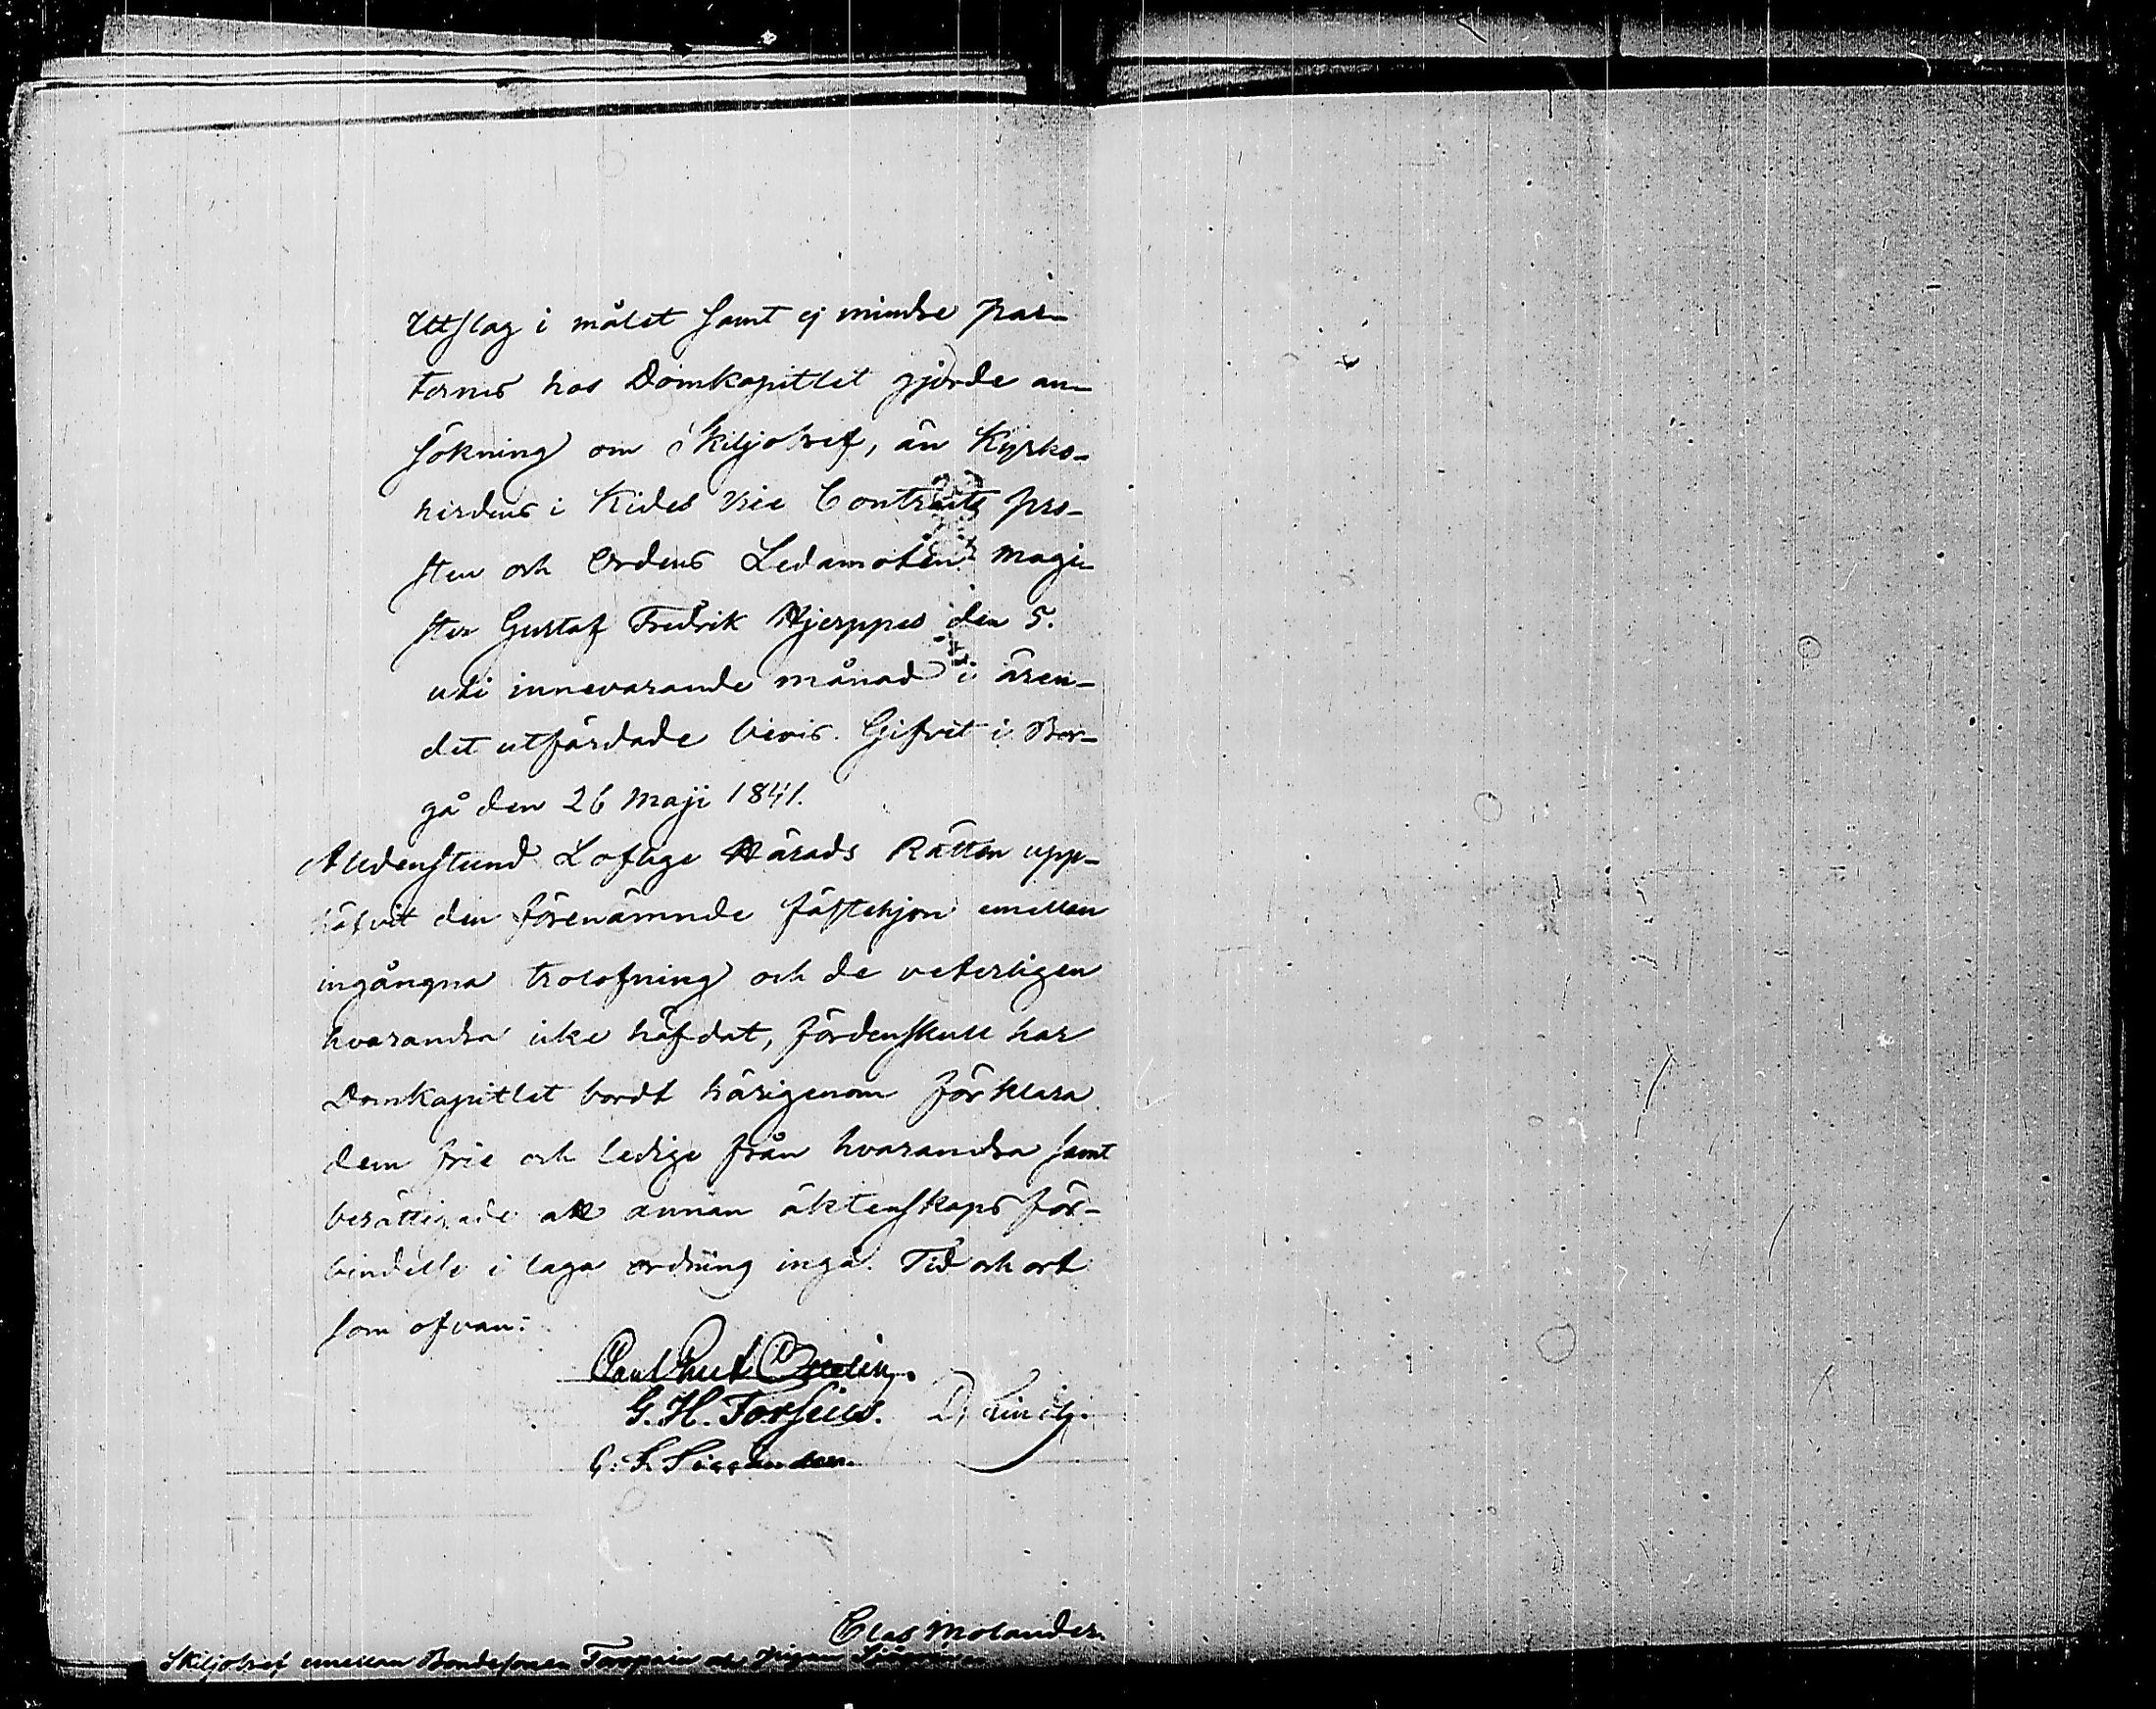 Utslag i målet samt ej mindre par-
ternes hos Domkapitlet gjorde an-
sökning om Skiljobref, än Kyrko-
herdens i Kides Vice Contracts pro-
sten och Ordens Ledamoten Magi-
ster Gustaf Fredrik Hjerppes den 5.
uti innevarande månad i ären-
det utfärdade bevis. Gifvet i Bor-
gå den 26 Maji 1841.
Alldenstund Loflige Härads Rätten upp-
häfvit den förenämnde fästehjon emellan
ingångna trolofning och de veterligen
hvarandra icke häfdat, fördenskull har
Domkapitlet bordt härigenom förklara
dem frie och ledige från hvarandra samt
berättigade att annan äktenskaps för-
bindelse i laga ordning ingå. Tid och ort
som ofvan:
G. H. Forsius.
Clas Molander.
Skiljobref emellan Bondesonen och Pigan